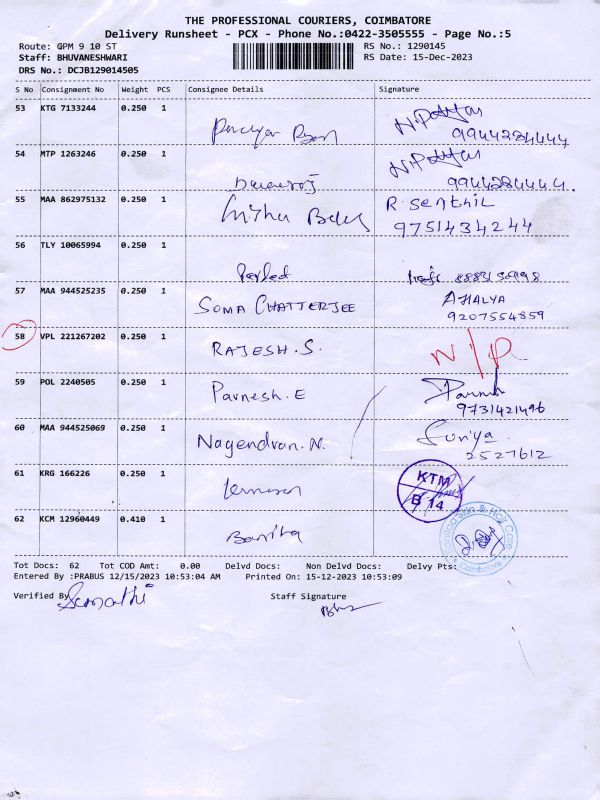 THE PROFESSIONAL COURIERS, COIMBATORE
Delivery Runsheet - PCX - Phone No.:0422-3505555 - Page No.:5
Route: GPM 9 10 ST
RS No.: 1290145
Staff: BHUVANESHWARI
RS Date: 15-Dec-2023
DRS No.: DCJB129014505
S No Consignment No Weight PCS Consignee Details Signature
53 KTG 7133244 0.250 1
9944284444
54 MTP 1263246 0.250 1
9944284444.
55 MAA 862975132 0.250 1 R. Senthil
9751434244
56 TLY 10065994 0.250 1
57 MAA 944525235 0.250 1 SOMA CHATTERJEE AHALYA
9207554859
58 VPL 221267202 0.250 1 RAJESH.S. N/P
59 POL 2240505 0.250 1 Parnesh.E
9731421496
60 MAA 944525069 0.250 1 Nagendran.N. Suriya
2527612
61 KRG 166226 0.250 1 KTM
B 14
62 KCM 12960449 0.410 1 Skin & Hair Care
Coimbatore
Tot Docs: 62 Tot COD Amt: 0.00 Delvd Docs: Non Delvd Docs: Delvy Pts:
Entered By :PRABUS 12/15/2023 10:53:04 AM Printed On: 15-12-2023 10:53:09
Verified By Staff Signature